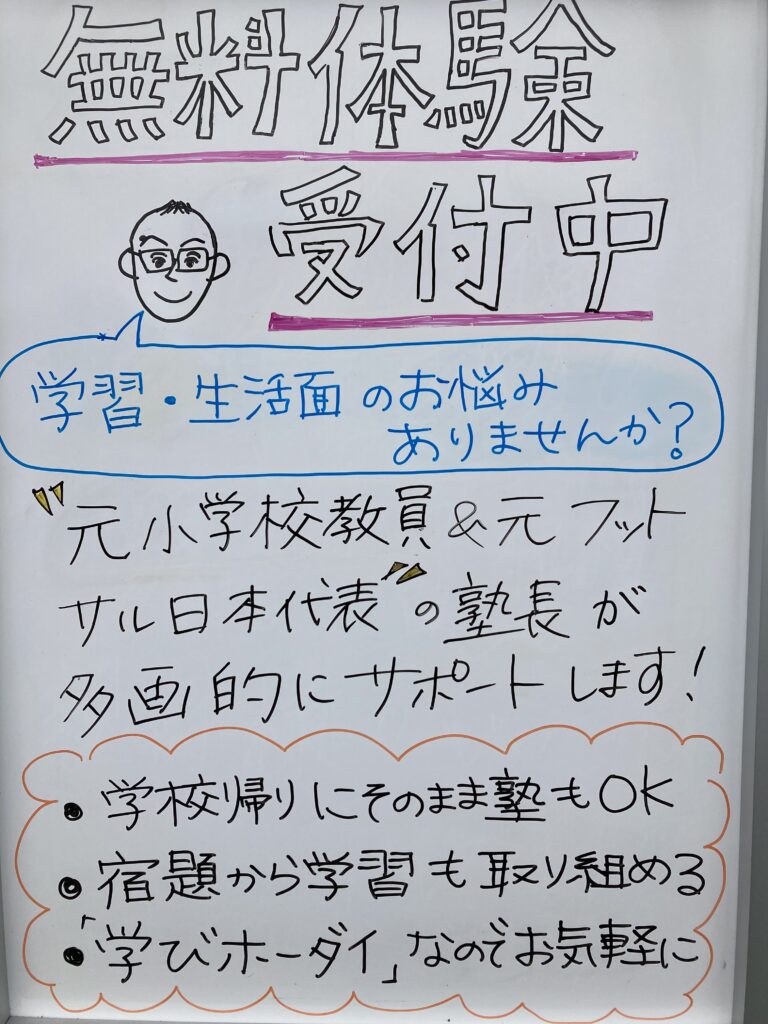 無料体験
受付中
学習・生活面のお悩み
ありませんか？
"元小学校教員&元フット
サル日本代表"の塾長が
多画的にサポートします！
・学校帰りにそのまま塾もOK
・宿題から学習も取り組める
・「学びホーダイ」なのでお気軽に